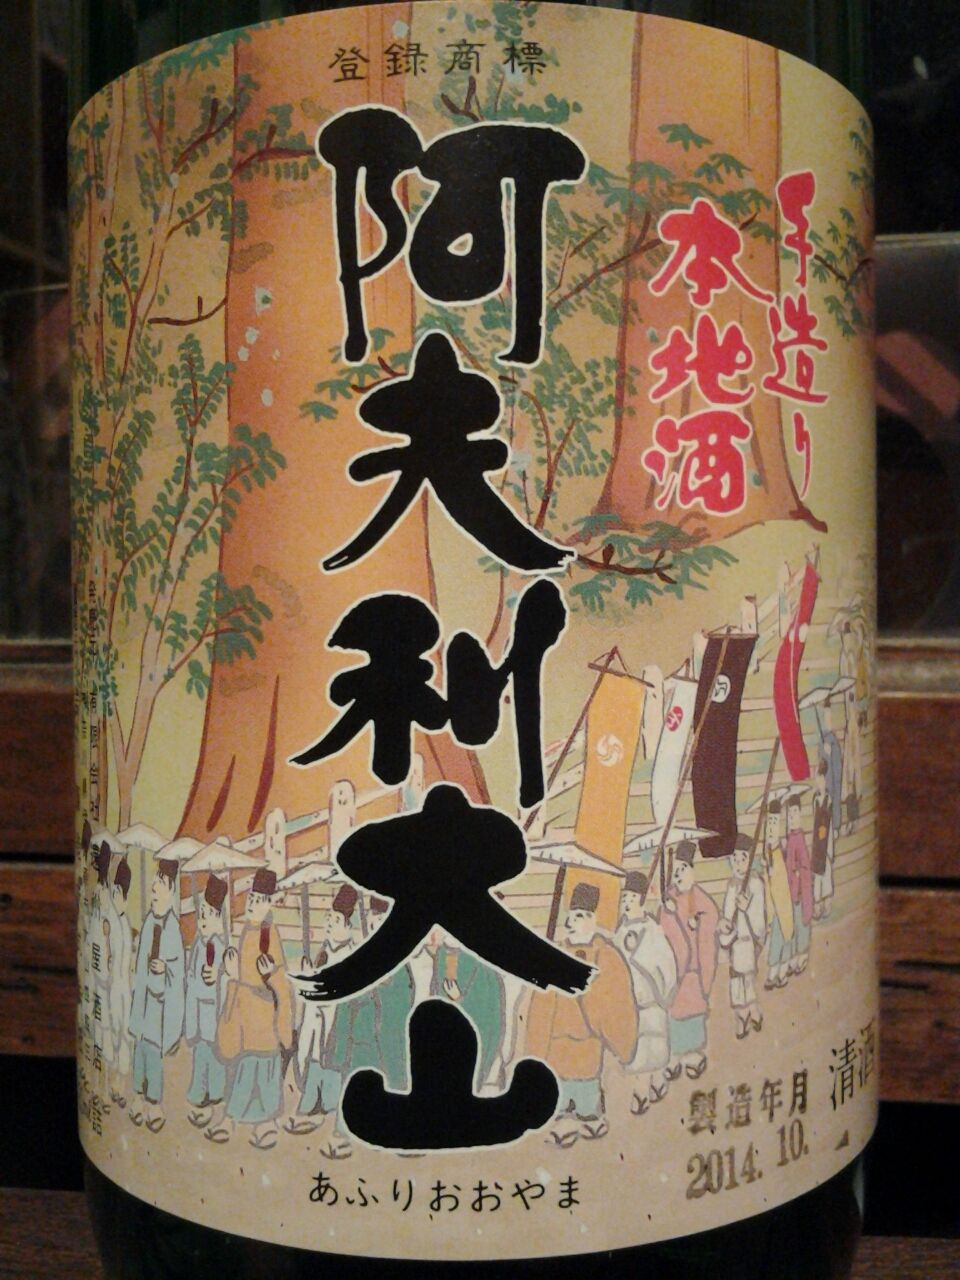 登録商標
手造り
本地酒
阿夫利大山
あふりおおやま
清酒
製造年月
2014. 10.